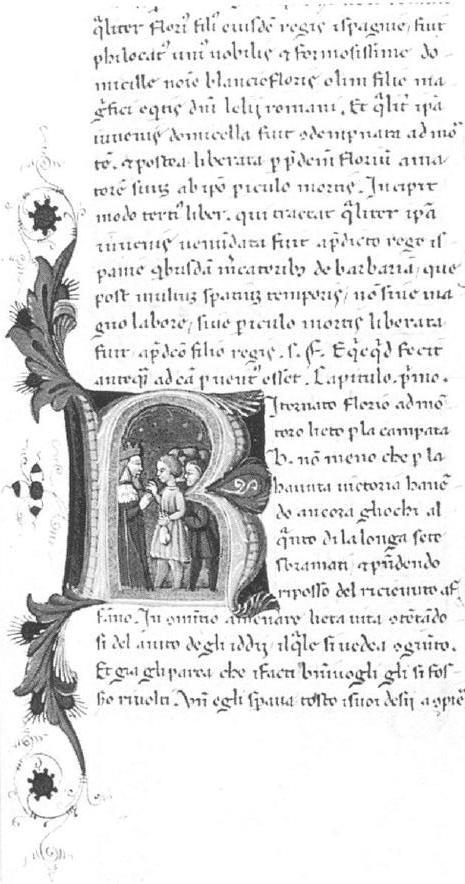 q̄liter florꝰ filꝰ eiusdē regis ispanie, fuit
philocatꝰ unīꝰ nobilis ꞇ formosissime do
micelle noīe blanciefloris olim filie ma
g̃fici eqͥtis dn̄i lelij romani. Et q̄lit̃ ip̄a
iuvenis domicella fuit ꝯdempnata ad mo᷑
tē. ꞇ postea liberata ꝑ p̄dc̄m floriū ama
torē suuꝫ ab ip̄o ꝑiculo mortis. Incipit
modo tertiꝰ liber. qui tractat q̄liter ip̄a
iuvenis venundata fuit a p̄dicto rege is
panie qͥbusdā m̃catoribꝫ de barbariā, que
post multuꝫ spatiuꝫ temporis, nō sine ma
gno labore, sive ꝑiculo mortis liberata
fuit, a p̄dc̄o filio regis .s. f. Et qͥcqͥd fecit
anteqꝫ ad eā ꝑventꝰ esset. Capitulo. pͥmo.
R Itornato florio ad mō
toro lieto ꝑ la campata
b. nō meno che ꝑ la
havuta victoria havē
do ancora gliochi al
qͣnto di la longa sete
sbramati, ꞇ p̄ndendo
riposso del ricievuto af
fāno. In ꝯmītio a menare lieta vita ꝯtētādo
si del aiuto degli iddij, il q̄le si vedea ꝯgiūto.
Et gia gli parea che i facti bn̄ivogli gli si fos
ho rivolti. Un̄ egli spava tosto i suoi desij a ꝯpiē